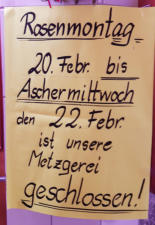 Rosenmontag
20. Febr. bis
Aschermittwoch
den 22. Febr.
ist unsere
Metzgerei
geschlossen!